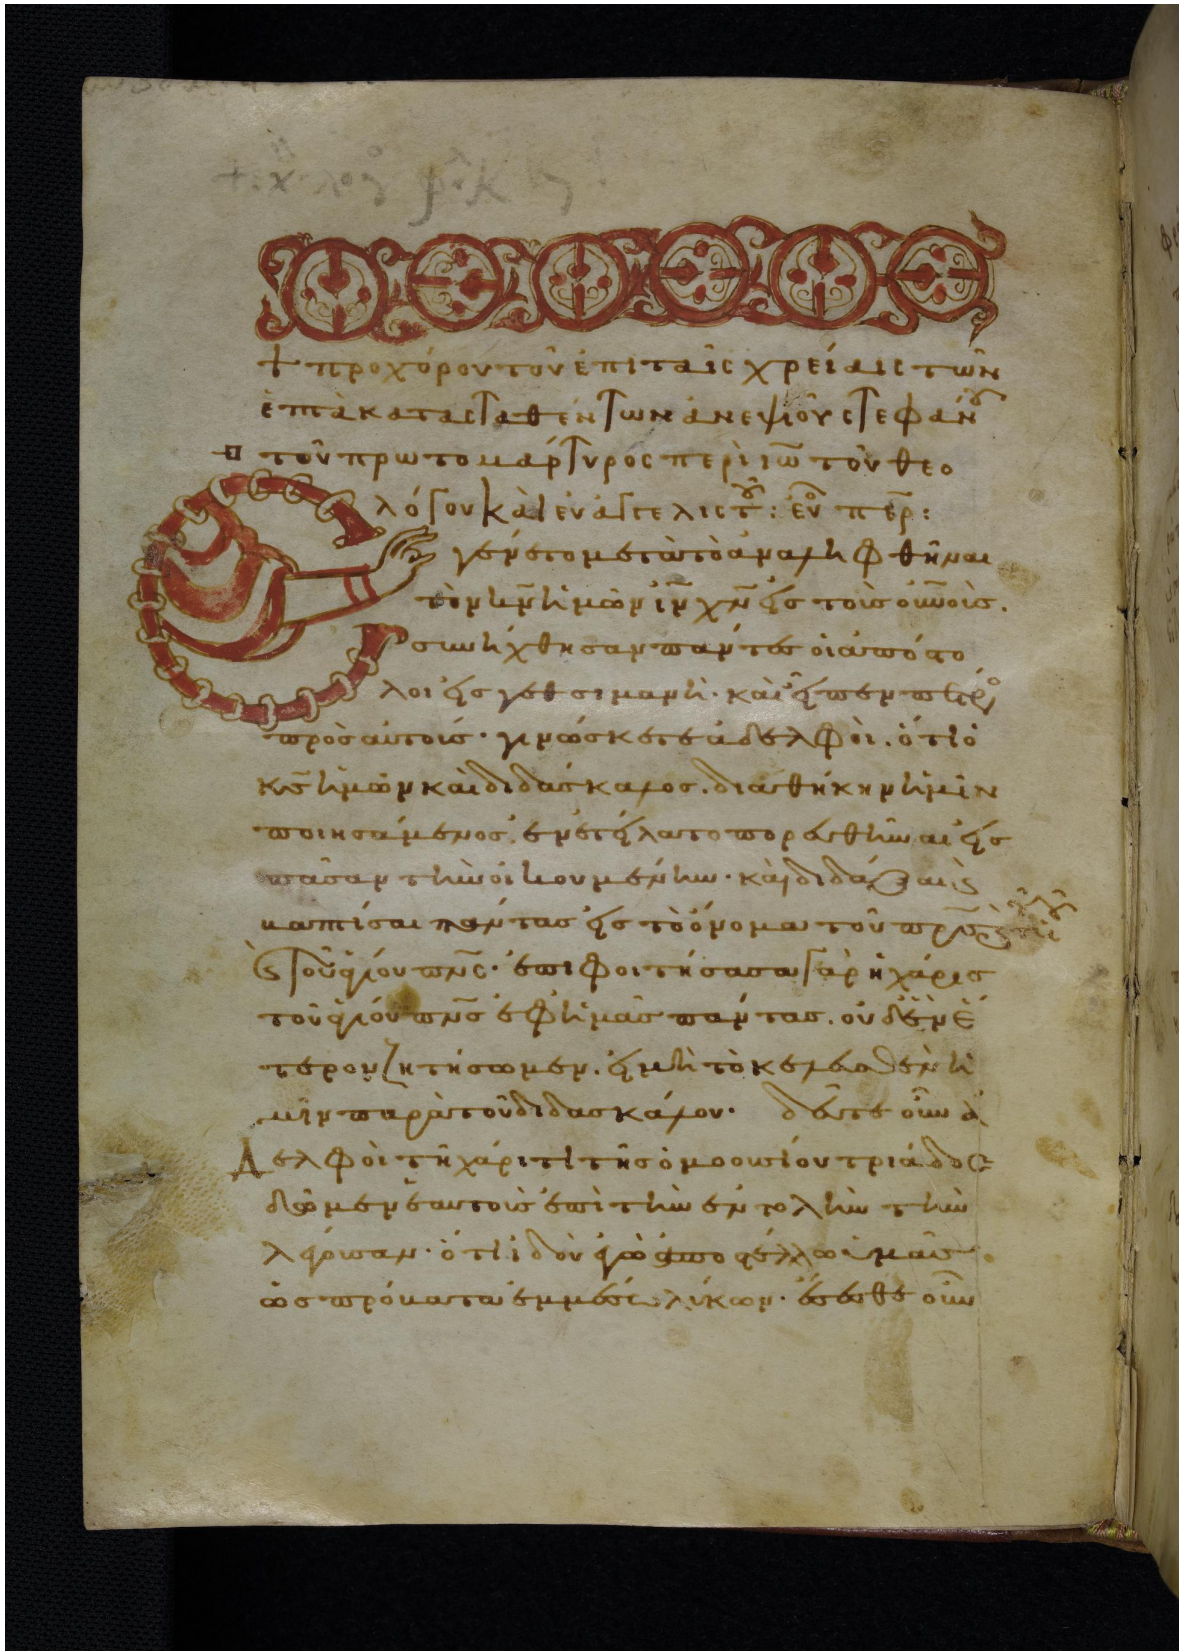 † προχόρου τοῦ ἐπὶ ταῖς χρείαις τῶν
ἑπτὰ κατασταθέντων ἀνεψιοῦ στεφάνου
τοῦ πρωτομάρτυρος περὶ ἰω τοῦ θεο
λόγου καὶ εὐαγγελιστοῦ:
Ἐγένετο μετὰ τὸ ἀναληφθῆναι
τὸν κν ἡμῶν ιν χν εἰς τοὺς οὐνοὺς.
συνήχθησαν πάντες οἱ ἀπόστο
λοι εἰς γεθσιμανή. καὶ εἶπεν πέτρο
πρὸς αὐτούς. γινώσκετε ἀδελφοὶ. ὅτι ὁ
κς ἡμῶν καὶ διδάσκαλος. διαθήκην ἡμῖν
ποιησάμενος. ἐνετείλατο πορευθῆναι εἰς
πᾶσαν τὴν οἰκουμένην. καὶ διδάξαι καὶ
βαπτίσαι πάντας εἰς τὸ ὄνομα τοῦ πρς καὶ τοῦ υἱοῦ
καὶ τοῦ ἁγίου πνς. ἐπιφοιτήσασα γὰρ ἡ χάρις
τοῦ ἁγίου πνς ἐφ ἡμᾶς πάντας. οὐδὲν ἕ
τερον ζητήσωμεν. εἰ μὴ τὸ κελευσθὲν ἡ
μῖν παρὰ τοῦ διδασκάλου. δεῦτε οὖν ἀ
δελφοὶ τῆ χάριτι τῆς ὁμοουσίου τριάδος
δῶμεν ἑαυτοὺς ἐπὶ τὴν ἐντολὴν τὴν
λέγουσαν. ὅτι ἰδοὺ ἐγὼ ἀποστέλλω ὑμᾶς
ὡς πρόβατα ἐμμέσω λύκων. ἔσεσθε οὖν